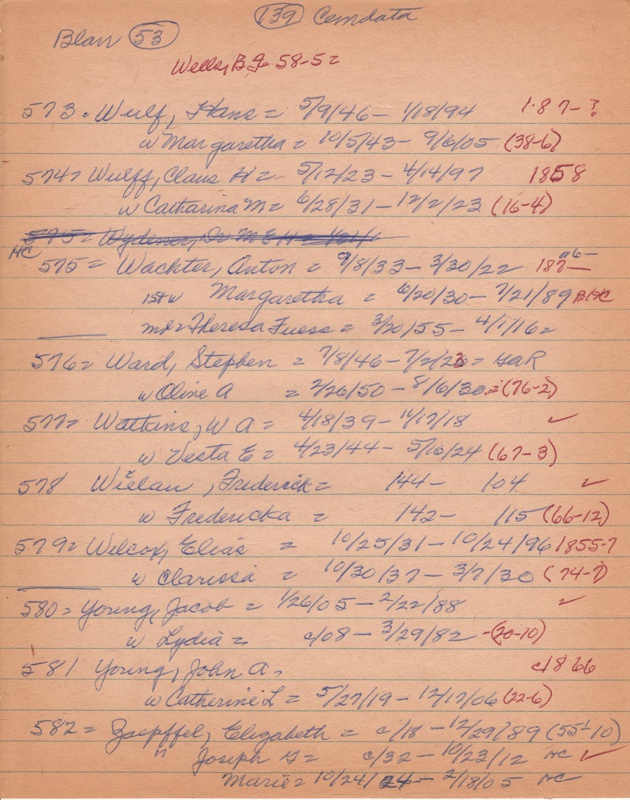 139 Cemdata
Blair 53
Wells, B J- 58-5=
573. Wulf, Hans = 5/9/46 - 1/18/94 1.87-?
w Margaretha = 10/5/43 - 9/6/05 (38-6)
574= Wulff, Claus H = 5/12/23 - 4/14/97 1858
w Catharina M = 6/28/31 - 12/2/23 (16-4)
575= Wydener, Dr M E H = 1/21/1
HC
575= Wachter, Anton = 9/8/33 - 3/30/22 187-
1st w Margaretha = 6/20/30 - 7/21/89 BHC
md= Theresa Fuess = 3/20/55 - 4/1/16=
576= Ward, Stephen = 7/8/46 - 7/2/23 = GAR
w Oline A = 2/26/50 - 8/6/30 = (76-2)
577= Watkins, W A = 4/18/39 - 11/17/18 ✓
w Vesta E = 4/23/44 - 5/16/24 (67-3)
578 Wielau, Frederick = 144 - 104 ✓
w Fredericka = 142 - 115 (66-12)
579= Wilcox, Elias = 10/25/31 - 10/24/96 1855-7
w Clarissa = 10/30/37 - 3/7/30 (74-7)
580= Young, Jacob = 1/26/05 - 2/22/88 ✓
w Lydia = c/08 - 3/29/82 - (20-10)
581 Young, John A. c/866
w Catherine L = 5/27/19 - 12/17/06 (22-6)
582= Zaepffel, Elizabeth = c/18 - 12/29/89 (55½-10)
" Joseph G = c/32 - 10/23/12 HC ✓
Marie = 10/24/24 - 2/18/05 HC